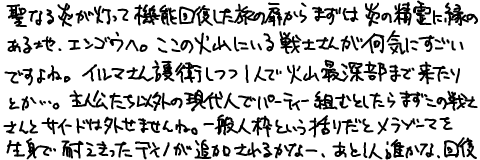 聖なる炎が灯って機能回復した旅の扉からまずは炎の精霊に縁の
ある地、エンゴウへ。ここの火山にいる戦士さんが何気にすごい
ですよね。イルマさん護衛しつつ1人で火山最深部まで来たり
とか…。主人公たち以外の現代人でパーティー組むとしたらまずこの戦士
さんとサイードは外せませんね。一般人枠という括りだとメラゾーマを
生身で耐えきったテドノが追加されるかなー、あと1人誰かな、回復